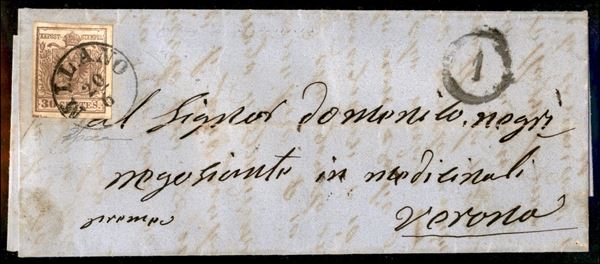 KKPOST-STEMPEL
30 CENTES.
MILANO
20
6
1
al Signor domenico negri
negosiante in medicinali
verona